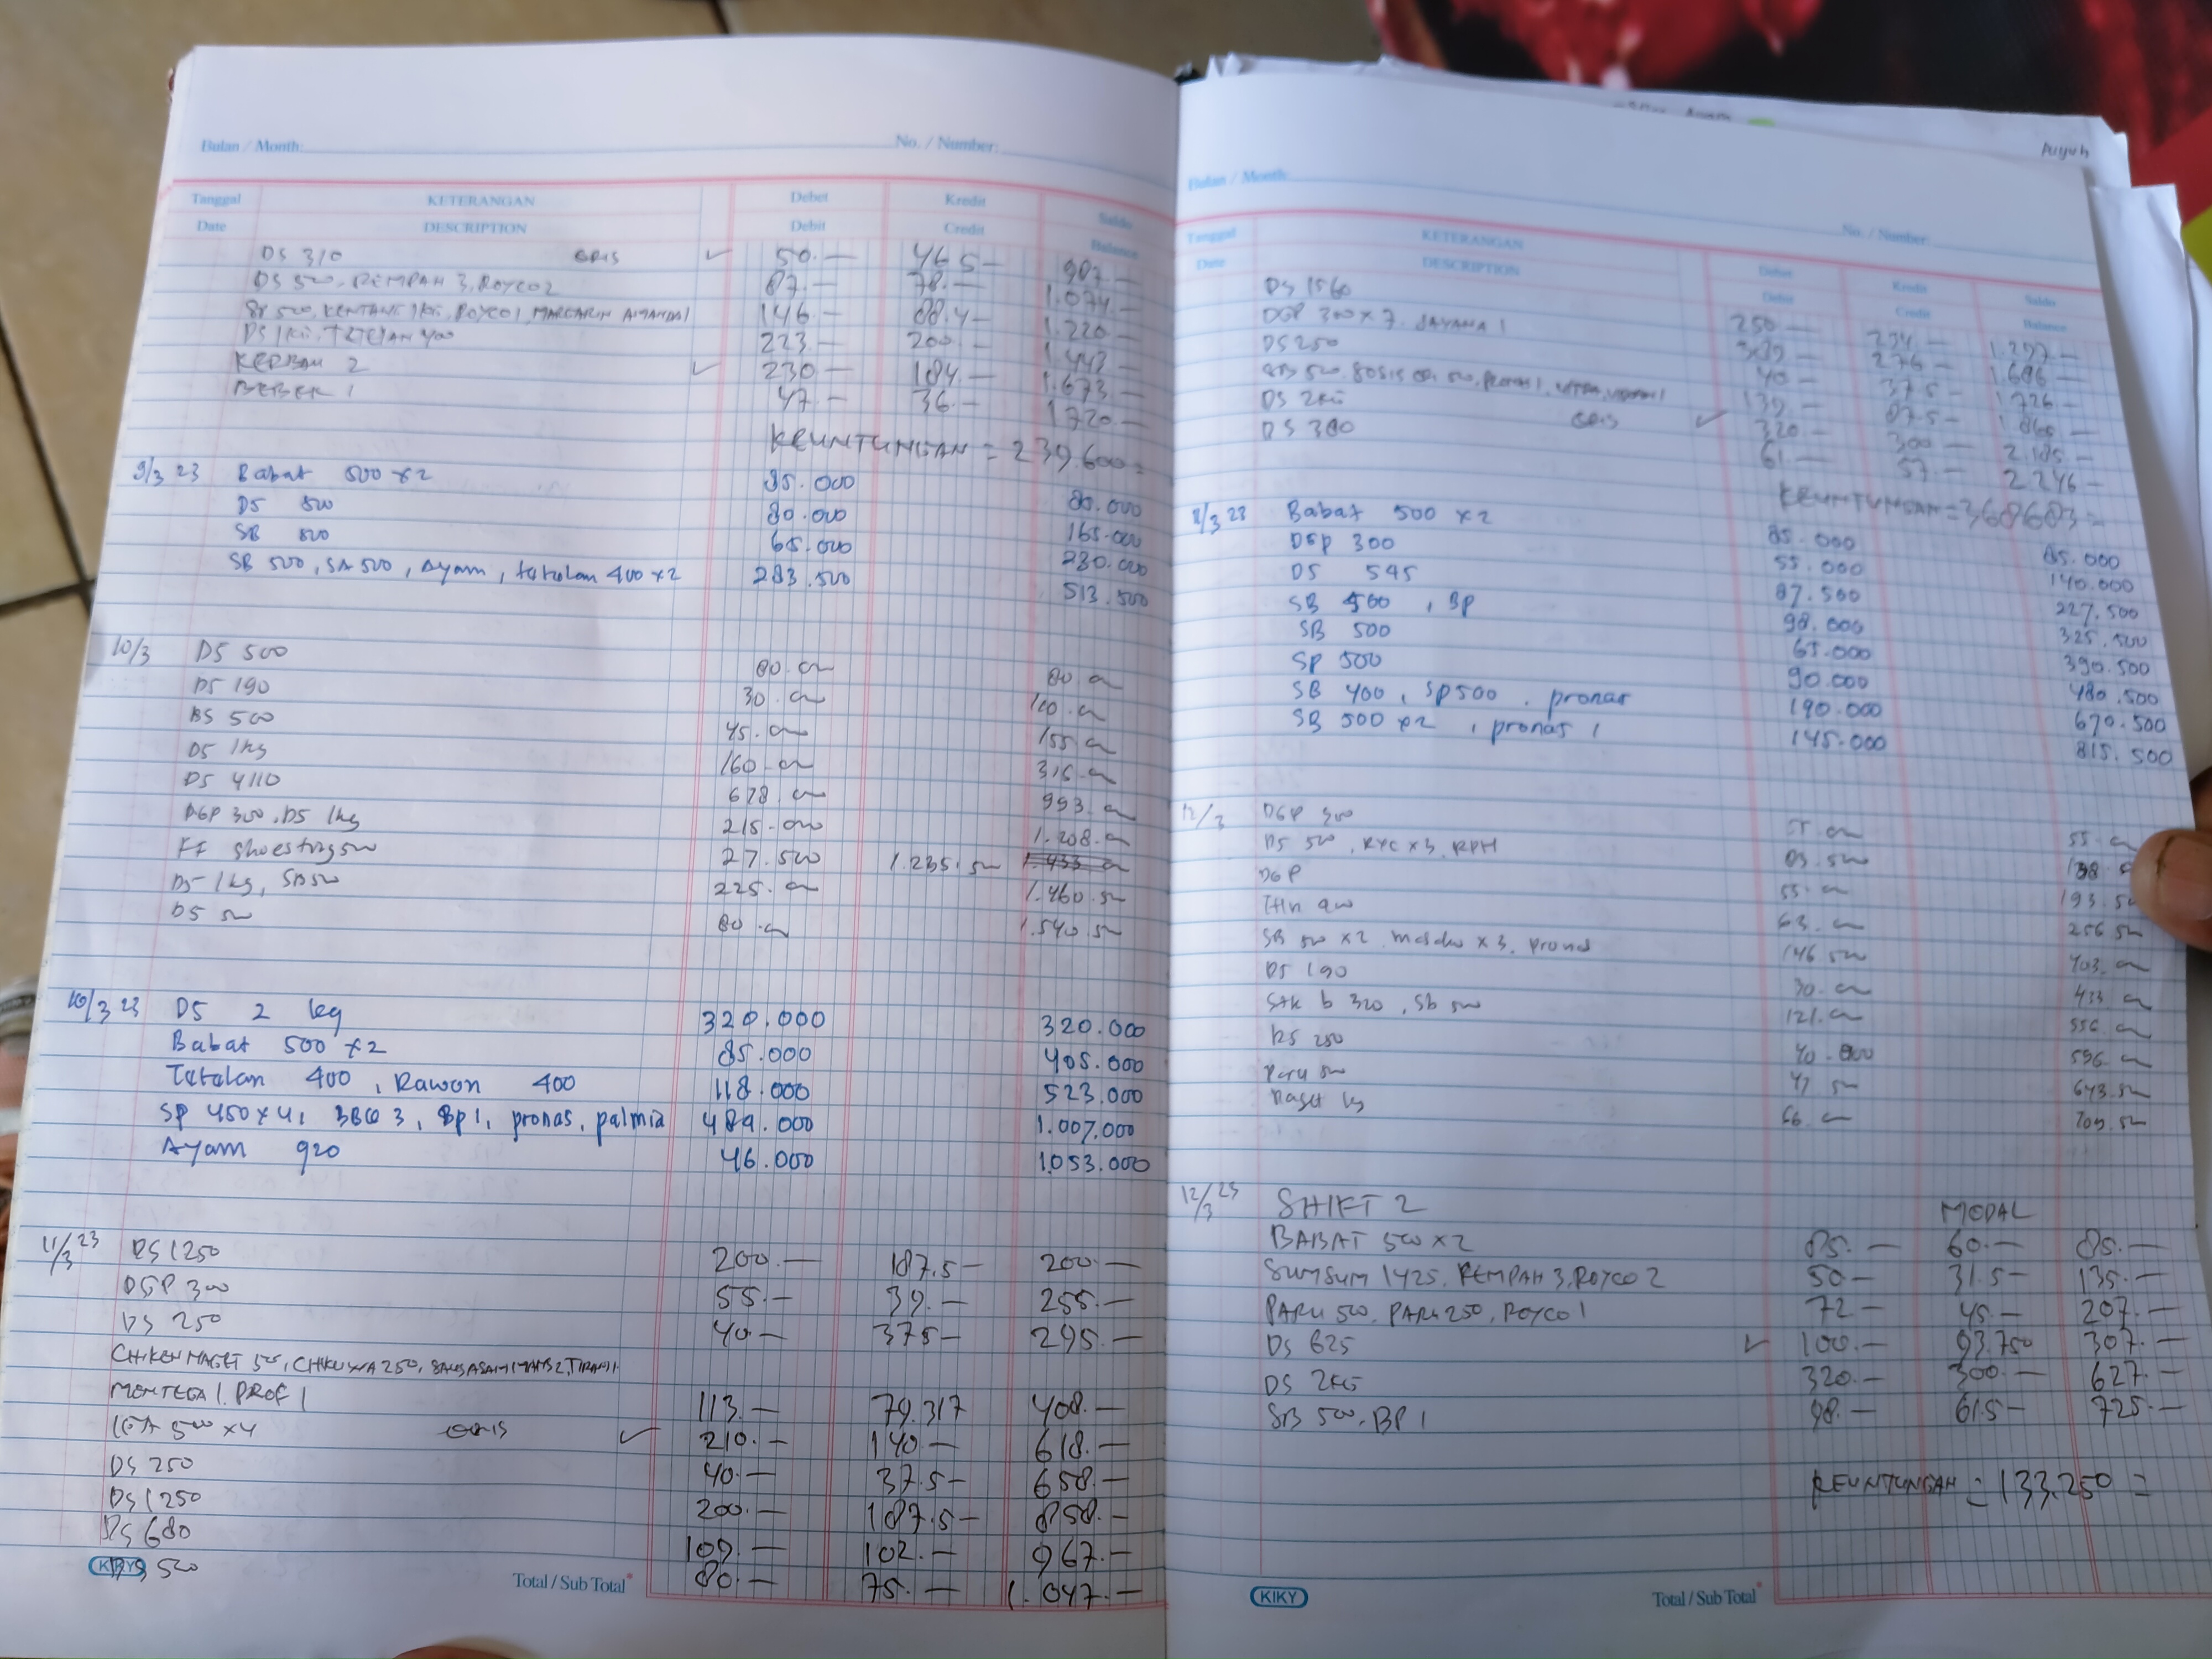 Bulan / Month: No. / Number:
Tanggal KETERANGAN Debet Kredit Saldo
Date DESCRIPTION Debit Credit Balance
DS 310 QRIS ✓ 50.— 46.5— 987.—
DS 500, REMPAH 3, ROYCO 2 87.— 78.— 1.074.—
SB 500, KENTANG 1KG, ROYCO 1, MARGARIN AMANDA 1 146.— 88.4— 1.220.—
DS 1KG, TETELAN 400 223.— 200.— 1.443.—
KERBAU 2 ✓ 230.— 184.— 1.673.—
BEBEK 1 47.— 36.— 1720.—
KEUNTUNGAN = 239.600=
9/3 23 Babat 500 x 2 85.000 85.000
DS 500 80.000 165.000
SB 500 65.000 230.000
SB 500, SA 500, Ayam, tetelan 400 x 2 283.500 513.500
10/3 DS 500 80.
DS 190 30.
BS 500 45. 155
DS 1kg 160 315
DS 4110 678 993
DGP 300, DS 1kg 215. 1.208
FF shoestring 500 27.500 1.235.500 1.433
DS 1kg, SB 500 225. 1.460.500
DS 500 80. 1.540.500
10/3 23 DS 2 kg 320.000 320.000
Babat 500 x 2 85.000 405.000
Tetelan 400, Rawon 400 118.000 523.000
SP 450 x 4, BBQ 3, BP 1, pronas, palmia 484.000 1.007.000
Ayam 920 46.000 1.053.000
11/3 23 DS 1250 200.— 187.5— 200.—
DGP 300 55.— 39.— 255.—
DS 250 40.— 37.5— 295.—
CHIKEN NAGET 500, CHIKUWA 250,
MENTEGA 1, PROF 1 113.— 79.317 408.—
500 x 4 QRIS ✓ 210.— 140.— 618.—
DS 250 40.— 37.5— 658.—
DS 1250 200.— 187.5— 858.—
DS 680 109.— 102.— 967.—
DS 500 80.— 75.— 1.047.—
KIKY Total / Sub Total*
Puyuh
Bulan / Month: No. / Number:
Tanggal KETERANGAN Debet Kredit Saldo
Date DESCRIPTION Debit Credit Balance
DS 1560 250.— 234.— 1.297.—
DGP 300 x 7, SAYANA 1 389.— 276.— 1.686.—
DS 250 40.— 37.5— 1726.—
SB 500, SOSIS 500, PRONAS 1, 139.— 87.5— 1865.—
DS 2KG QRIS ✓ 320.— 300.— 2.185.—
DS 380 61.— 57.— 2.246.—
KEUNTUNGAN = 368683=
/3 23 Babat 500 x 2 85.000 85.000
DGP 300 55.000 140.000
DS 545 87.500 227.500
SB 500, BP 98.000 325.500
SB 500 65.000 390.500
SP 500 90.000 480.500
SB 400, SP 500, pronas 190.000 670.500
SB 500 x 2, pronas 1 145.000 815.500
12/3 DGP 300 55. 55.
DS 500, RYC x 3, RPH 83.500 138
DGP 55. 193.500
400 63. 256.500
SB 500 x 2, x 3, pronas 146.500 403.
DS 190 30. 433
b 320, SB 500 121. 
DS 250 40.000
Paru 500 47.500 643.500
Naget kg 66. 709.500
12/3 23 SHIFT 2 MODAL
BABAT 500 x 2 85.— 60.— 85.—
SUMSUM 1425, REMPAH 3, ROYCO 2 50— 31.5— 135.—
PARU 500, PARU 250, ROYCO 1 72— 45.— 207.—
DS 625 ✓ 100.— 93.750 307.—
DS 2KG 320.— 300.— 627.—
SB 500, BP 1 98.— 61.5— 725.—
KEUNTUNGAN = 133.250=
KIKY Total / Sub Total*